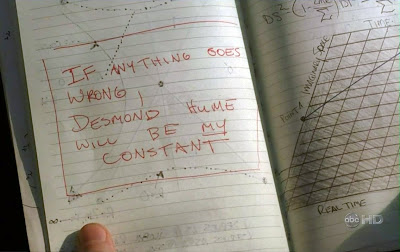 IF ANYTHING GOES
WRONG,
DESMOND HUME
WILL BE MY
CONSTANT
IMAGINARY SPACE
TIME
REAL TIME
abc HD